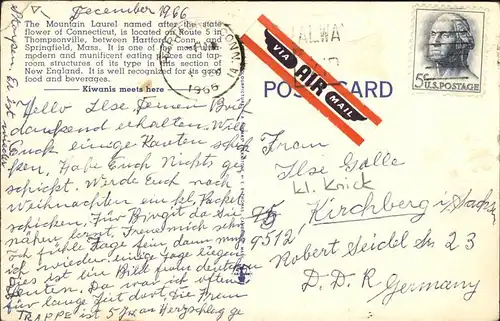 December 1966
The Mountain Laurel named after the state
flower of Connecticut, is located on Route 5 in
Thompsonville, between Hartford, Conn. and
Springfield, Mass. It is one of the most
modern and munificent eating places and tap-
room structures of its type in this section of
New England. It is well recognized for its good
food and beverages.
Kiwanis meets here
CONN.
1966
VIA
AIR
MAIL
5¢ U.S. POSTAGE
POST CARD
Hello Ilse Deinen Brief
dankend erhalten. Will
Euch einige Karten schik
ken. Habe Euch Nichts ge
schickt. Werde Euch nach
Weihnachten ein kl. Packet
schicken. Für Birgit da Sie
nähen lernt. Freu mich sehr
Ich fühle Tage fein, dann muss
ich wieder einige Tage liegen
Dies ist ein Bild from deutschen
Leuten. Da war ich
für lange Zeit dort die
TRAPPE ist 5 Herzschlag ge
Frau
Ilse Galle
kl. Knick
Kirchberg i/Sachs
9512,
Robert Seidel Str 23
D.D.R Germany